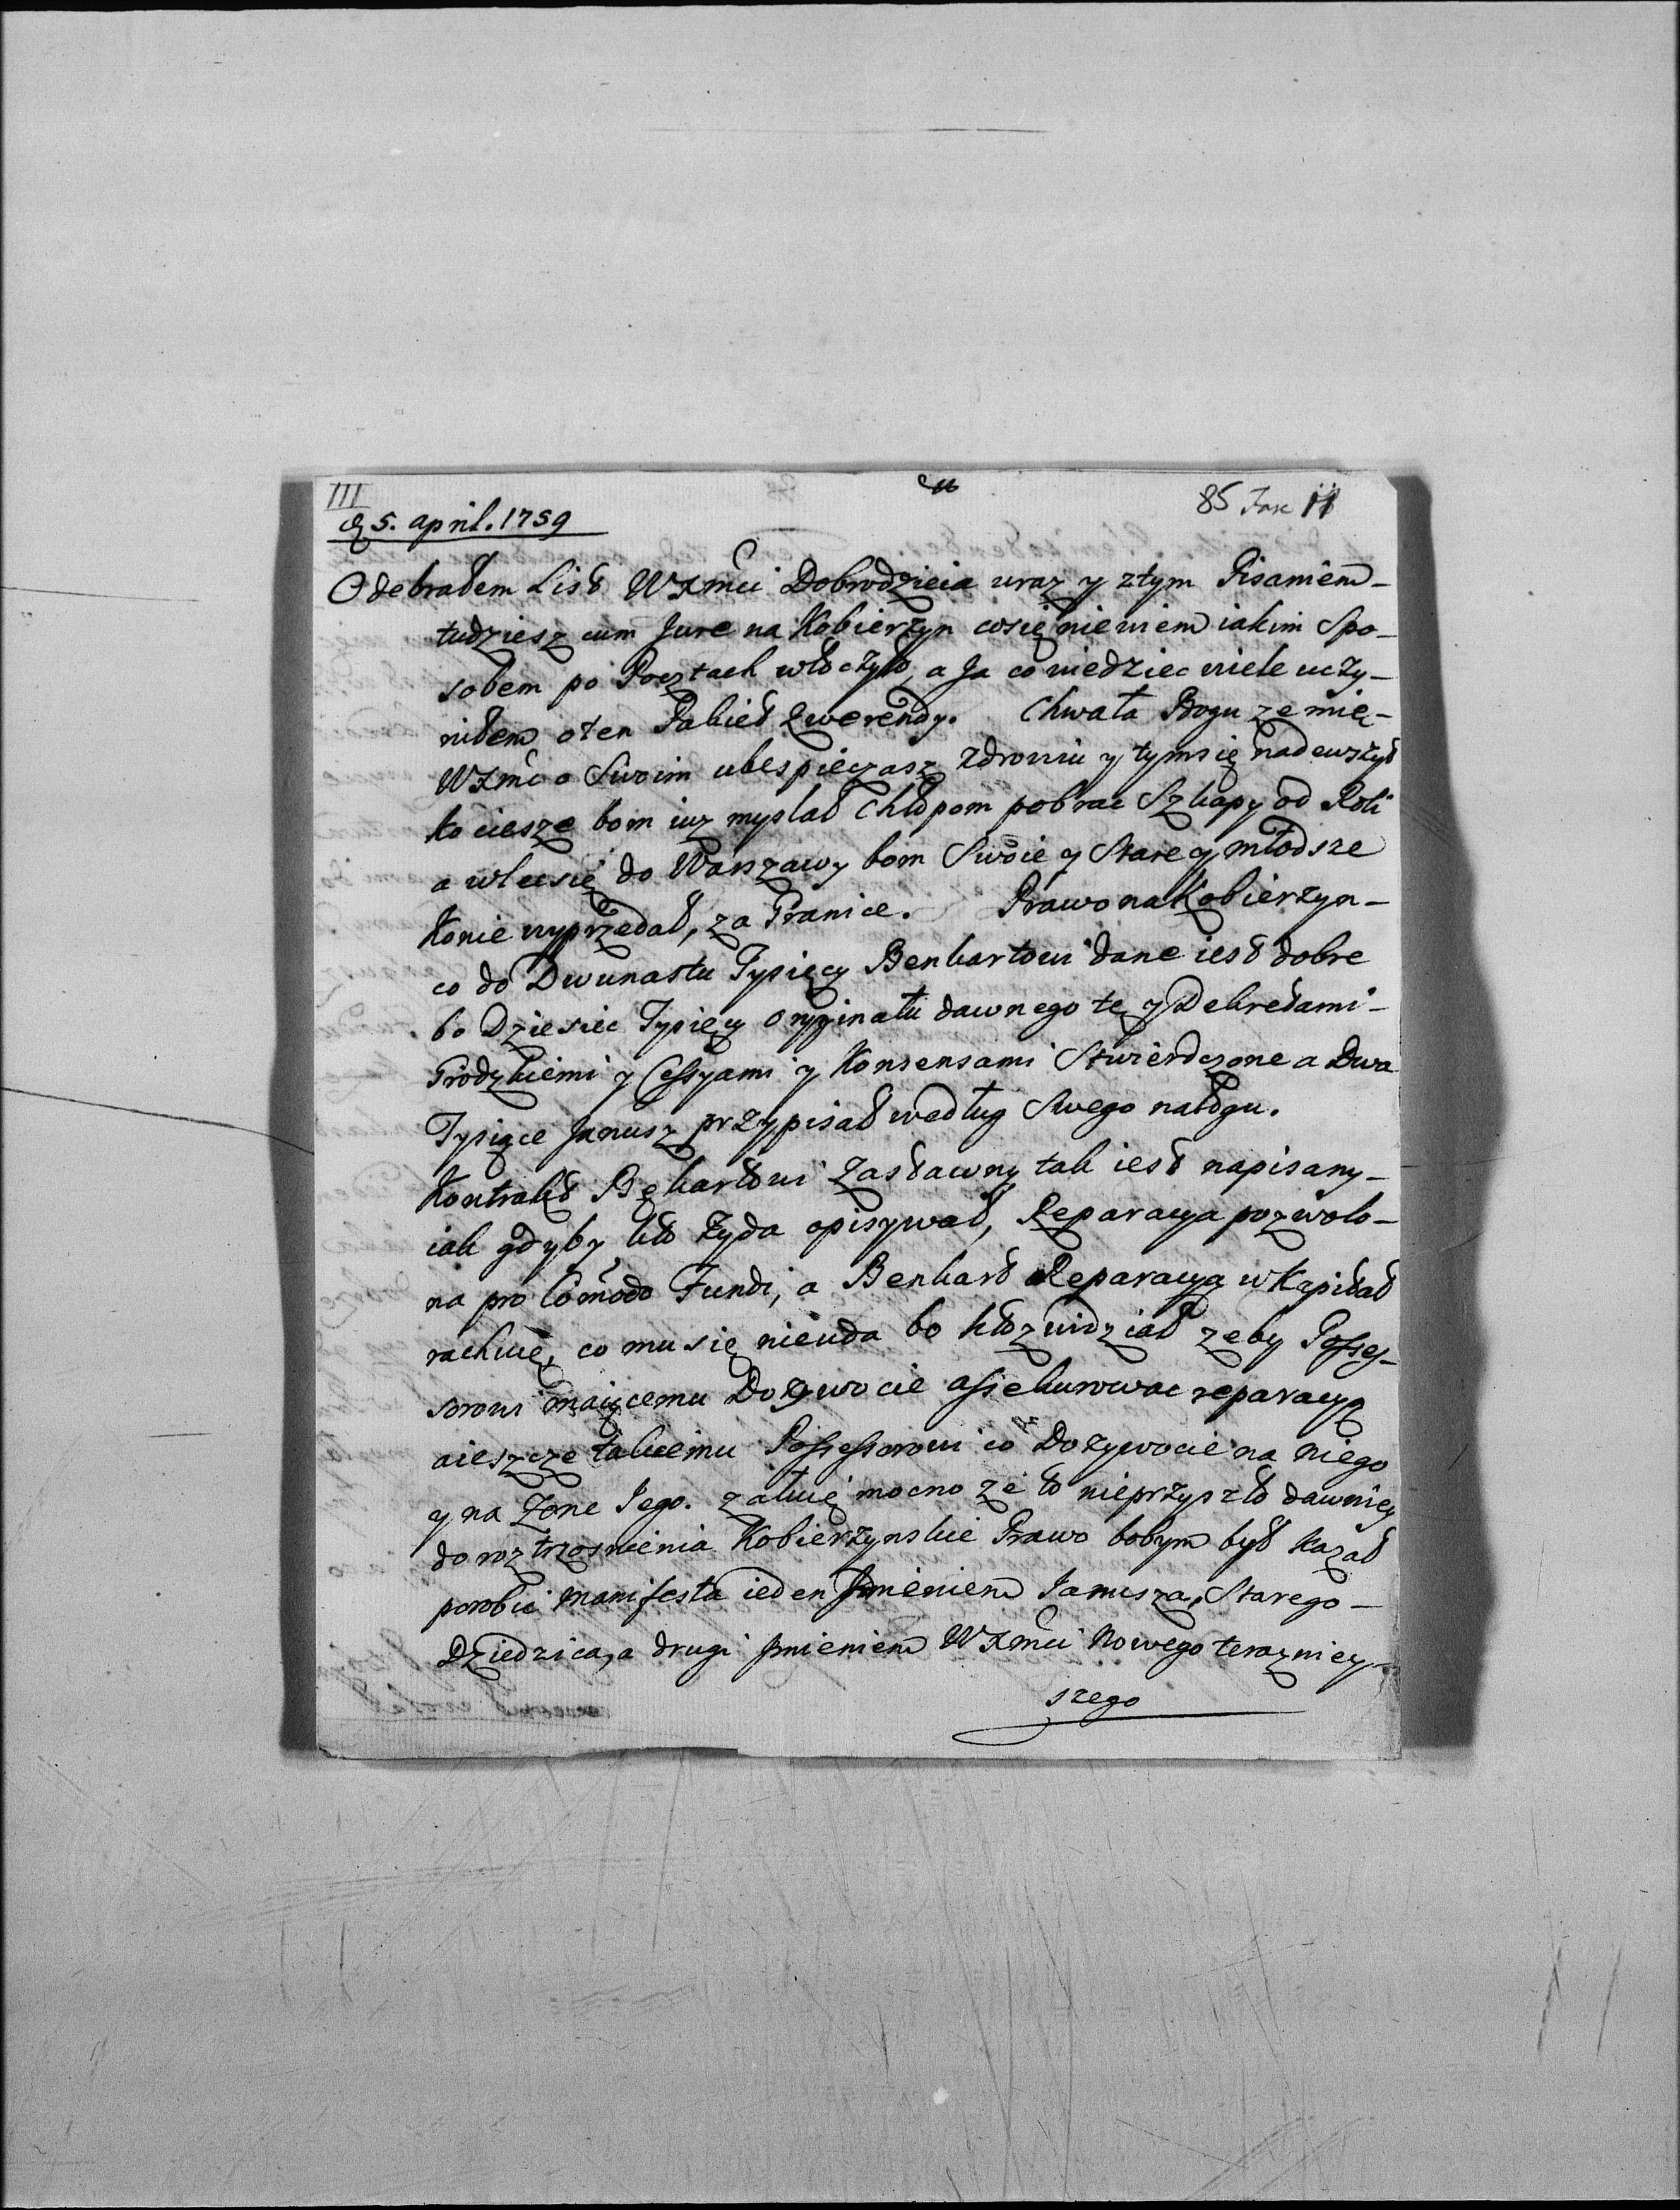 III
85 Fasc II
d 5. april. 1759
Odebrałem List WXmći Dobrodzieia wraz y ztym Pisaniem-
tudziesz cum Jure na Kobierzyn cosię niewiem iakim Spo-
sobem po Pocztach włóczyło, a Ja co niedziec wiele uczy-
niłem o ten Pakiet Zwerendy. Chwała Bogu ze mię-
WXmć o Swoim ubespieczasz zdrowiu y tymsię nadewszyst
ko ciesze bom iuz myslał Chłopom pobrac Szkapy od Roli
a wlecsię do Warszawy bom Swoie y Stare y młodsze
Konie wyprzedał, za Granice. Prawo na Kobierzyn-
co do Dwunastu Tysięcy Benkartowi dane iest dobre
bo Dziesiec Tysięcy oryginału dawnego te y Dekretami-
Grodzkiemi y Cessyami y Konsensami Stwierdzone a Dwa
Tysiące Janusz przypisał według Swego nałogu.
Kontrakt Bękartowi Zastawny tak iest napisany-
iak gdyby kto Żyda opisywał, Reparacya pozwolo-
na pro Comodo Fundi, a Benkart Reparacyą w Kapitał
rachuie, co mu się nieuda bo ktoz widział zeby Posses-
sorowi maiącemu Dozywocie assekurowac reparacyą
aieszcze takiemu Possessorowi co Dozywocie na niego
y na Zone Jego. załuię mocno ze to nieprzyszło dawniey
do roztrząsnienia Kobierzynskie Prawo bobym był kazał
porobić manifesta ieden Jmieniem Janusza, Starego-
Dziedzica, a drugi Jmieniem WXmći Nowego terazniey-
szego